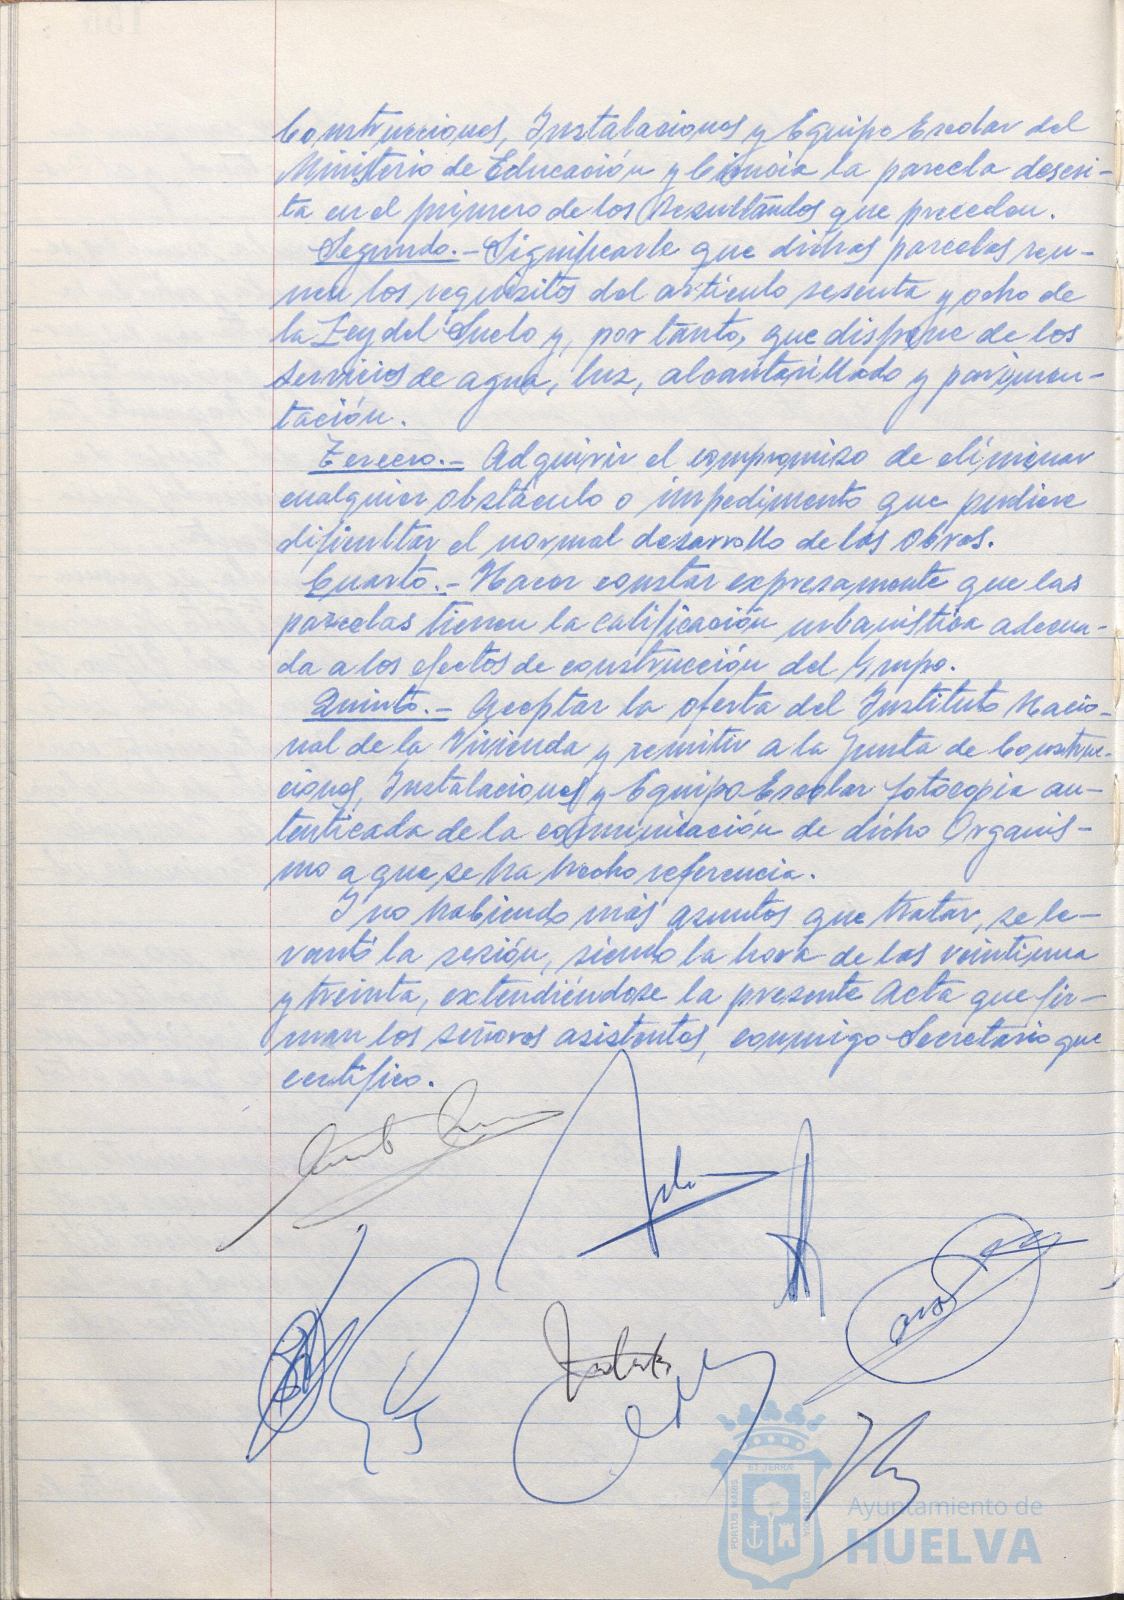 Construcciones, Instalaciones y Equipo Escolar del
Ministerio de Educación y Ciencia la parcela descri-
ta en el primero de los Resultandos que preceden.
Segundo.- Significarle que dichas parcelas reu-
nen los requisitos del artículo sesenta y ocho de
la Ley del Suelo y, por tanto, que dispone de los
servicios de agua, luz, alcantarillado y pavimen-
tación.
Tercero.- Adquirir el compromiso de eliminar
cualquier obstáculo o impedimento que pudiere
dificultar el normal desarrollo de las obras.
Cuarto.- Hacer constar expresamente que las
parcelas tienen la calificación urbanística adecua-
da a los efectos de construcción del Grupo.
Quinto.- Aceptar la oferta del Instituto Nacio-
nal de la Vivienda y remitir a la Junta de Construc-
ciones, Instalaciones y Equipo Escolar fotocopia au-
tenticada de la comunicación de dicho Organis-
mo a que se ha hecho referencia.
Y no habiendo más asuntos que tratar, se le-
vantó la sesión, siendo la hora de las veintiuna
y treinta, extendiéndose la presente Acta que fir-
man los señores asistentes, conmigo Secretario que
certifico.
PORTUS MARIS
ET TERRAE
CUSTODIA
Ayuntamiento de
HUELVA